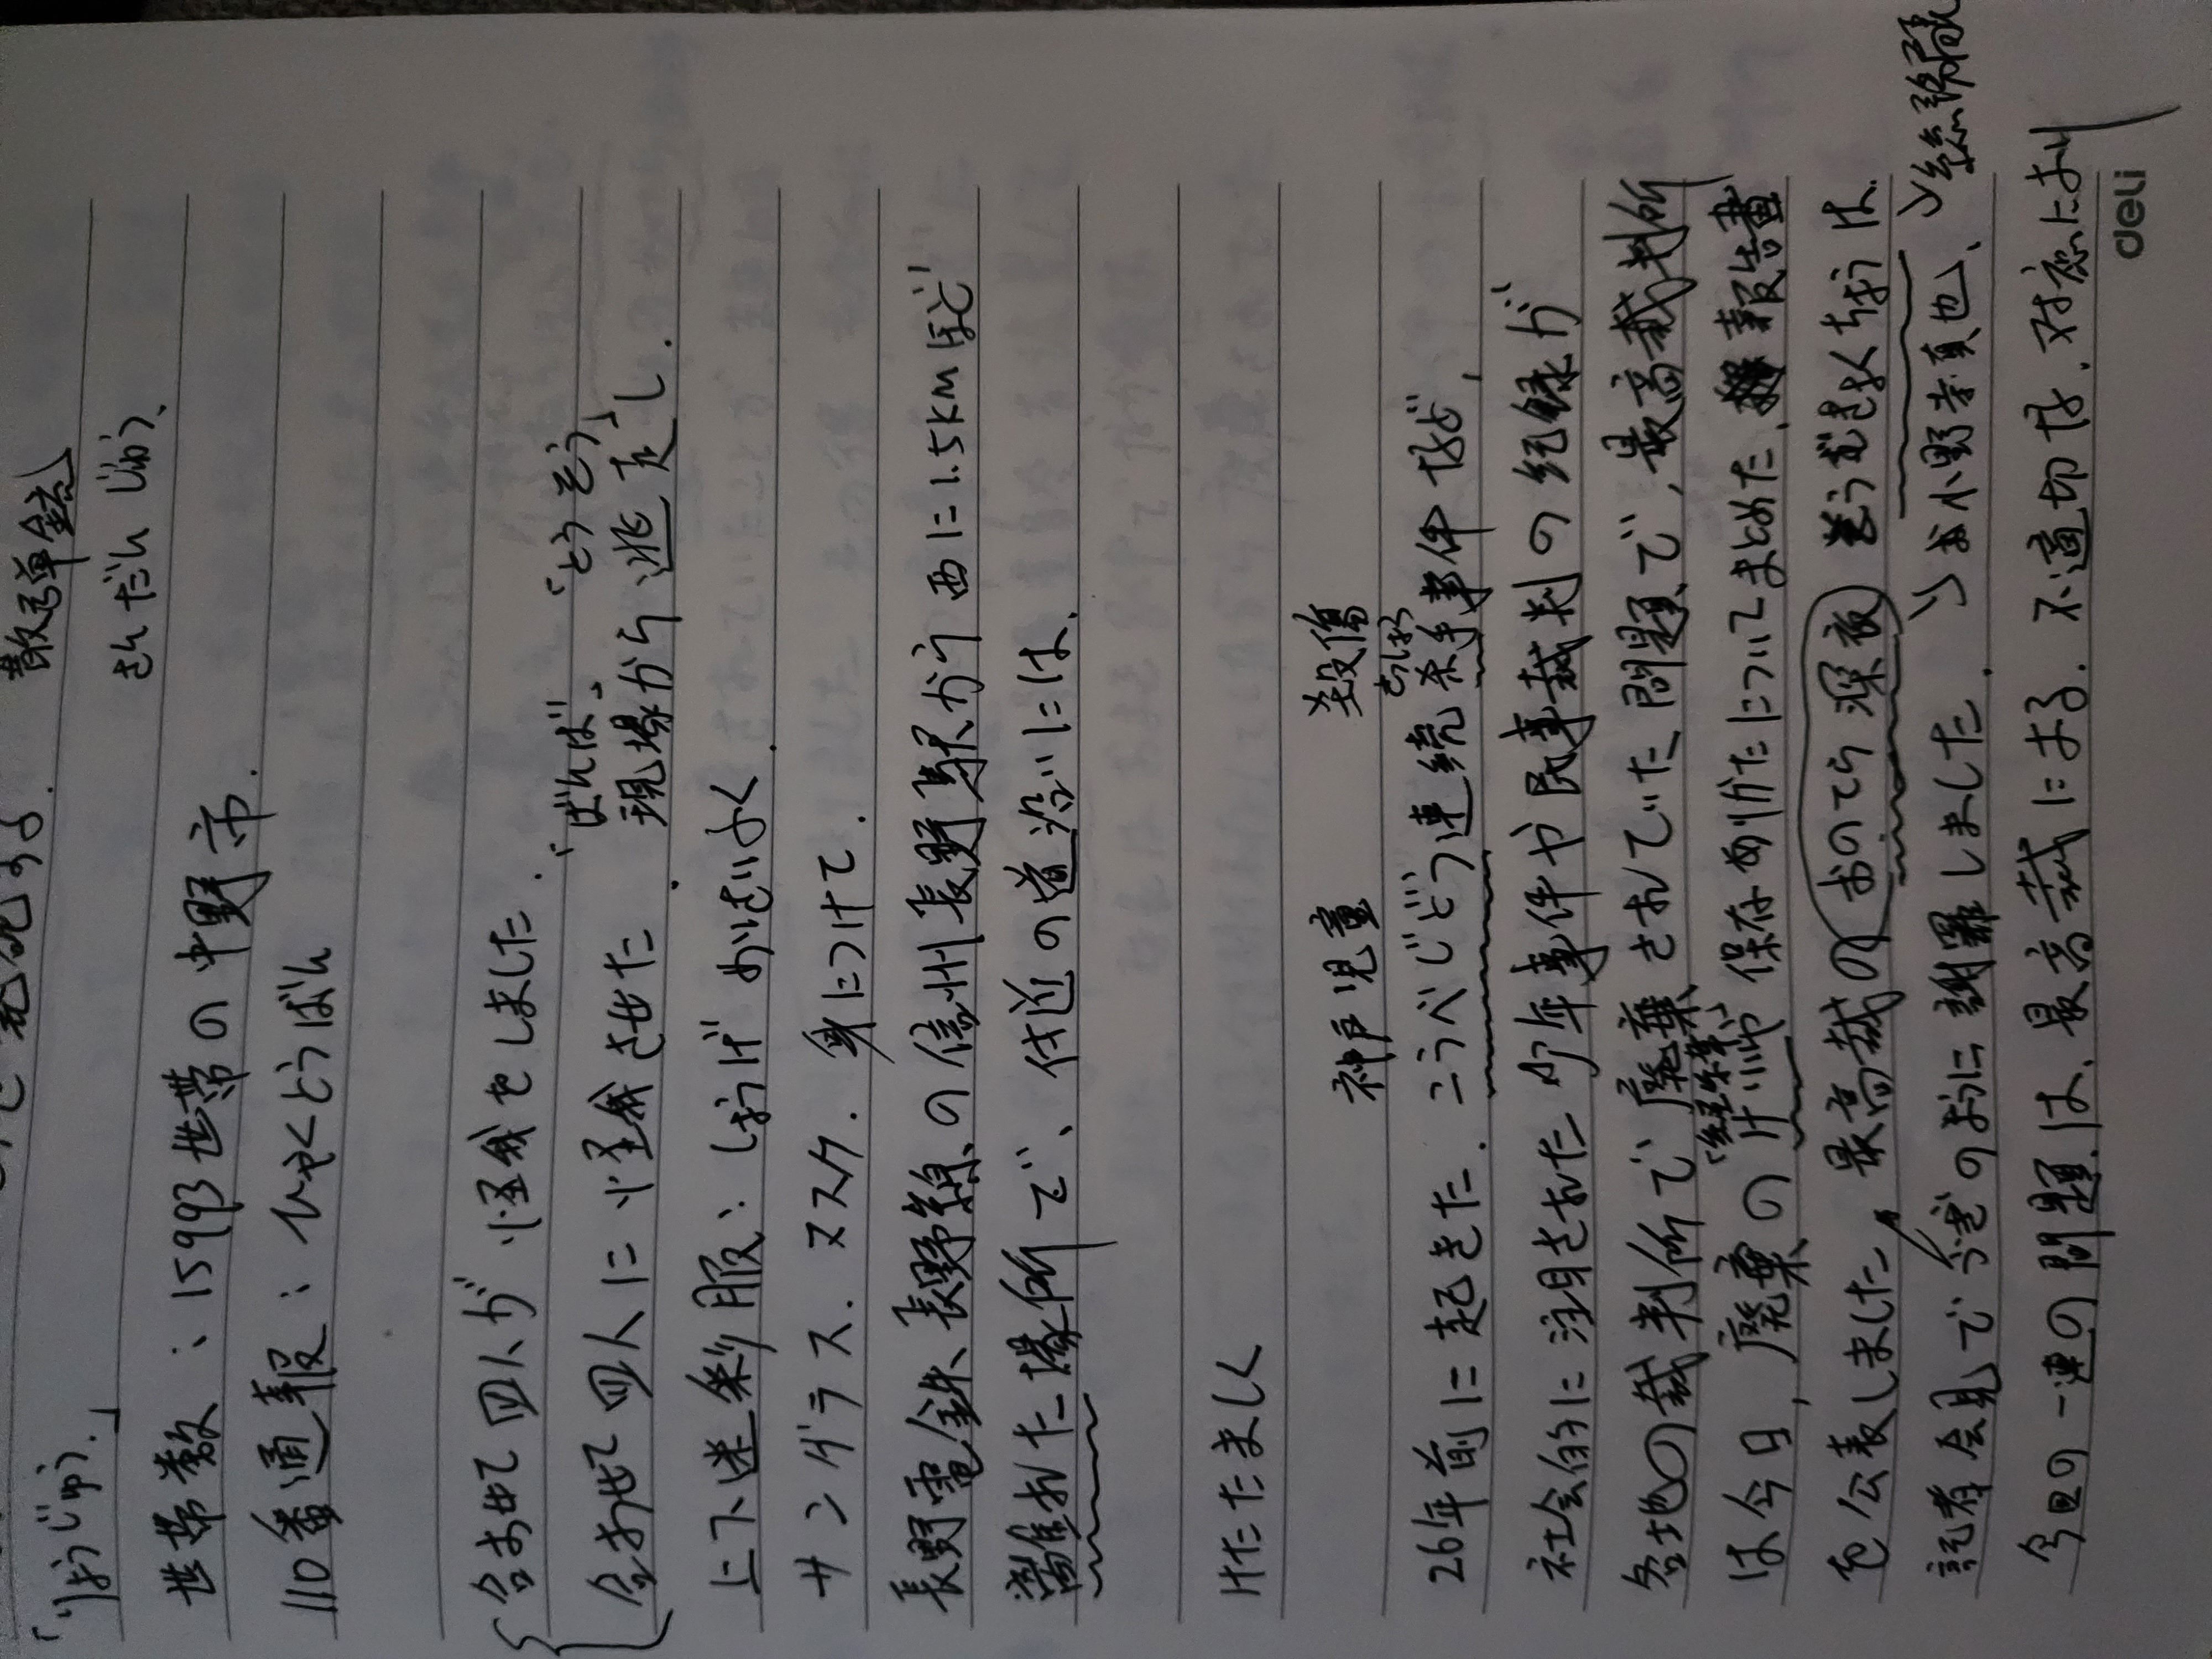 発砲する. 散弾銃
「りょうじゅう.」 さんだんじゅう、
世帯数：15993世帯の中野市.
110番通報：ひゃくとうばん
合わせて四人が怪我をしました.
「ばんば」 「とうそう」
合わせて四人に怪我させた 現場から逃走し.
上下迷彩服：じょうげ めいさいふく
サングラス. マスク. 身につけて.
長野電鉄、長野線の信州長野駅から西に1.5kmほど
離れた場所で、付近の道沿いには、
けたたましく
神戸児童 殺傷
さっしょう
26年前に起きた. こうべじどう連続殺事件など,
社会的に注目された少年事件や民事裁判の記録が
各地の裁判所で廃棄されていた問題で, 最高裁判所
「経緯」
は今日, 廃棄のけいいや保存ありかたについてまとめた、報告書
を公表しました 最高裁のおのてら深夜そうむきょくちょうは.
記者会見でつぎのように謝罪しました. →お小野寺真也、→総務局長
今回の一連の問題は、最高裁による. 不適切な. 対応により
deli